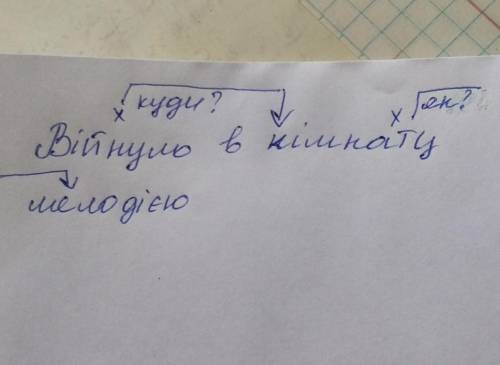 х куди? х як?
Війнуло в кімнату
мелодією